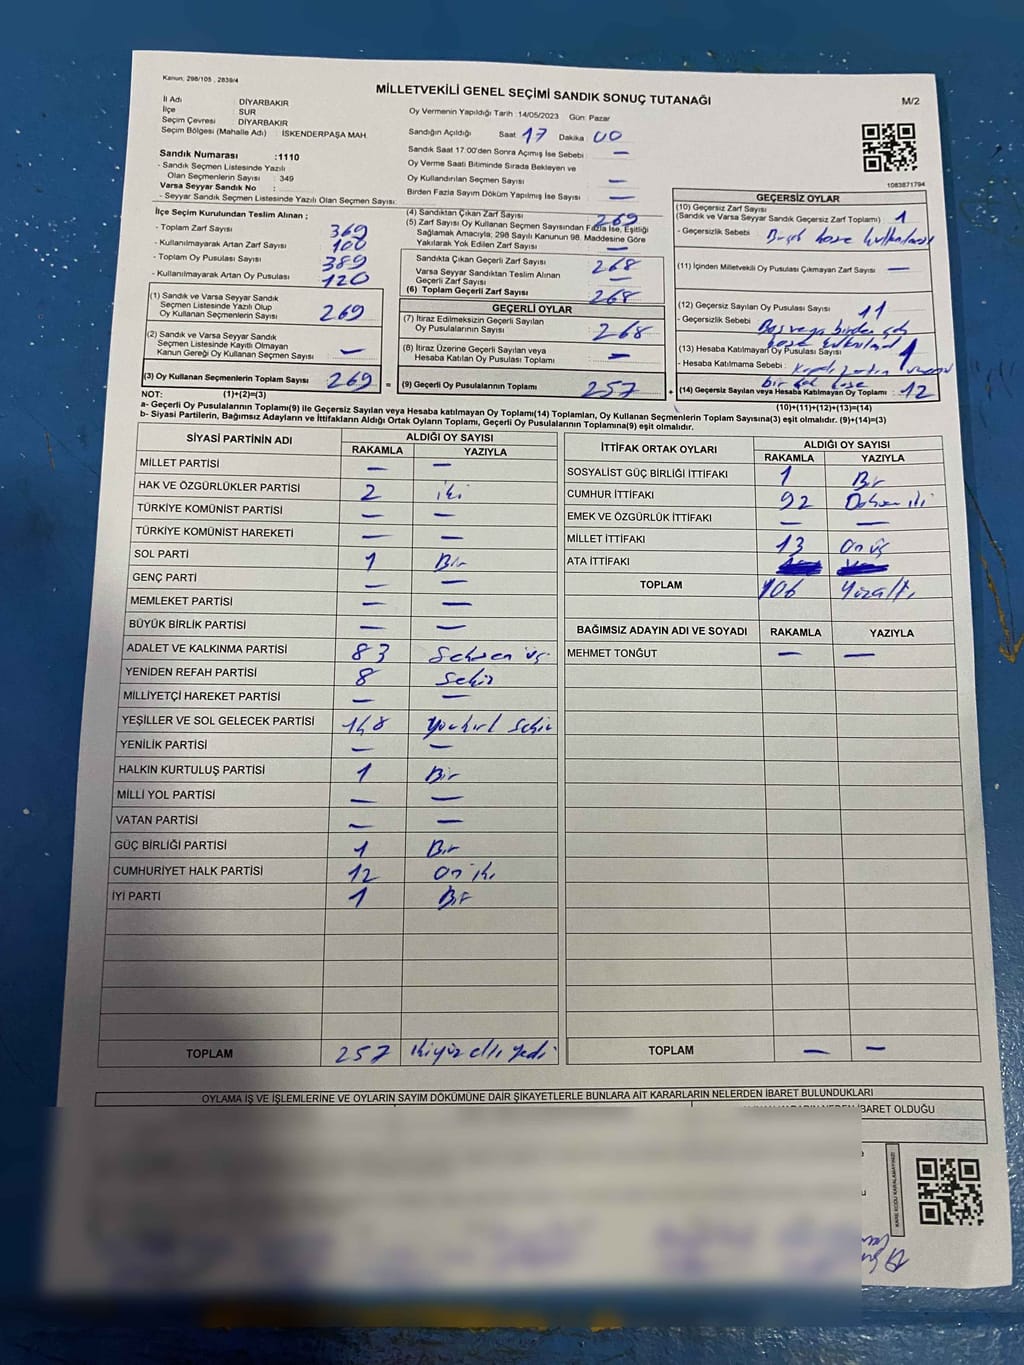 Kanun: 298/105 , 2839/4
MİLLETVEKİLİ GENEL SEÇİMİ SANDIK SONUÇ TUTANAĞI
M/2
İl Adı : DİYARBAKIR
İlçe : SUR
Seçim Çevresi : DİYARBAKIR
Seçim Bölgesi (Mahalle Adı) : İSKENDERPAŞA MAH.
Sandık Numarası :1110
- Sandık Seçmen Listesinde Yazılı
Olan Seçmenlerin Sayısı : 349
Varsa Seyyar Sandık No :
- Seyyar Sandık Seçmen Listesinde Yazılı Olan Seçmen Sayısı:
Oy Vermenin Yapıldığı Tarih :14/05/2023 Gün: Pazar
Sandığın Açıldığı Saat 17 Dakika 00
Sandık Saat 17:00'den Sonra Açımış İse Sebebi : —
Oy Verme Saati Bitiminde Sırada Bekleyen ve
Oy Kullandırılan Seçmen Sayısı : —
Birden Fazla Sayım Döküm Yapılmış İse Sayısı : —
1083871794
İlçe Seçim Kurulundan Teslim Alınan ;
- Toplam Zarf Sayısı : 369
- Kullanılmayarak Artan Zarf Sayısı : 100
- Toplam Oy Pusulası Sayısı : 389
- Kullanılmayarak Artan Oy Pusulası : 120
(1) Sandık ve Varsa Seyyar Sandık
Seçmen Listesinde Yazılı Olup
Oy Kullanan Seçmenlerin Sayısı : 269
(2) Sandık ve Varsa Seyyar Sandık
Seçmen Listesinde Kayıtlı Olmayan
Kanun Gereği Oy Kullanan Seçmen Sayısı : —
(3) Oy Kullanan Seçmenlerin Toplam Sayısı : 269 =
(4) Sandıktan Çıkan Zarf Sayısı : 269
(5) Zarf Sayısı Oy Kullanan Seçmen Sayısından Fazla İse, Eşitliği
Sağlamak Amacıyla; 298 Sayılı Kanunun 98. Maddesine Göre
Yakılarak Yok Edilen Zarf Sayısı : —
Sandıkta Çıkan Geçerli Zarf Sayısı : 268
Varsa Seyyar Sandıktan Teslim Alınan
Geçerli Zarf Sayısı : —
(6) Toplam Geçerli Zarf Sayısı : 268
GEÇERLİ OYLAR
(7) İtiraz Edilmeksizin Geçerli Sayılan
Oy Pusulalarının Sayısı : 268
(8) İtiraz Üzerine Geçerli Sayılan veya
Hesaba Katılan Oy Pusulası Toplamı : —
(9) Geçerli Oy Pusulalarının Toplamı : 257 +
GEÇERSİZ OYLAR
(10) Geçersiz Zarf Sayısı
(Sandık ve Varsa Seyyar Sandık Geçersiz Zarf Toplamı) : 1
- Geçersizlik Sebebi :
(11) İçinden Milletvekili Oy Pusulası Çıkmayan Zarf Sayısı : —
(12) Geçersiz Sayılan Oy Pusulası Sayısı : 11
- Geçersizlik Sebebi : Boş veya birden çok
(13) Hesaba Katılmayan Oy Pusulası Sayısı : 1
- Hesaba Katılmama Sebebi :
(14) Geçersiz Sayılan veya Hesaba Katılmayan Oy Toplamı : 12
NOT: (1)+(2)=(3)
(10)+(11)+(12)+(13)=(14)
a- Geçerli Oy Pusulalarının Toplamı(9) ile Geçersiz Sayılan veya Hesaba katılmayan Oy Toplamı(14) Toplamları, Oy Kullanan Seçmenlerin Toplam Sayısına(3) eşit olmalıdır. (9)+(14)=(3)
b- Siyasi Partilerin, Bağımsız Adayların ve İttifakların Aldığı Ortak Oyların Toplamı, Geçerli Oy Pusulalarının Toplamına(9) eşit olmalıdır.
SİYASİ PARTİNİN ADI ALDIĞI OY SAYISI
RAKAMLA YAZIYLA
MİLLET PARTİSİ — —
HAK VE ÖZGÜRLÜKLER PARTİSİ 2 iki
TÜRKİYE KOMÜNİST PARTİSİ — —
TÜRKİYE KOMÜNİST HAREKETİ — —
SOL PARTİ 1 Bir
GENÇ PARTİ — —
MEMLEKET PARTİSİ — —
BÜYÜK BİRLİK PARTİSİ — —
ADALET VE KALKINMA PARTİSİ 83 Seksen üç
YENİDEN REFAH PARTİSİ 8 Sekiz
MİLLİYETÇİ HAREKET PARTİSİ — —
YEŞİLLER VE SOL GELECEK PARTİSİ 148 Yüzkırk Sekiz
YENİLİK PARTİSİ — —
HALKIN KURTULUŞ PARTİSİ 1 Bir
MİLLİ YOL PARTİSİ — —
VATAN PARTİSİ — —
GÜÇ BİRLİĞİ PARTİSİ 1 Bir
CUMHURİYET HALK PARTİSİ 12 On iki
İYİ PARTİ 1 Bir
TOPLAM 257 ikiyüz elli yedi
İTTİFAK ORTAK OYLARI ALDIĞI OY SAYISI
RAKAMLA YAZIYLA
SOSYALİST GÜÇ BİRLİĞİ İTTİFAKI 1 Bir
CUMHUR İTTİFAKI 92 Doksan iki
EMEK VE ÖZGÜRLÜK İTTİFAKI — —
MİLLET İTTİFAKI 13 On üç
ATA İTTİFAKI
TOPLAM 106 Yüzaltı
BAĞIMSIZ ADAYIN ADI VE SOYADI RAKAMLA YAZIYLA
MEHMET TONĞUT — —
TOPLAM — —
OYLAMA İŞ VE İŞLEMLERİNE VE OYLARIN SAYIM DÖKÜMÜNE DAİR ŞİKAYETLERLE BUNLARA AİT KARARLARIN NELERDEN İBARET BULUNDUKLARI
İBARET OLDUĞU